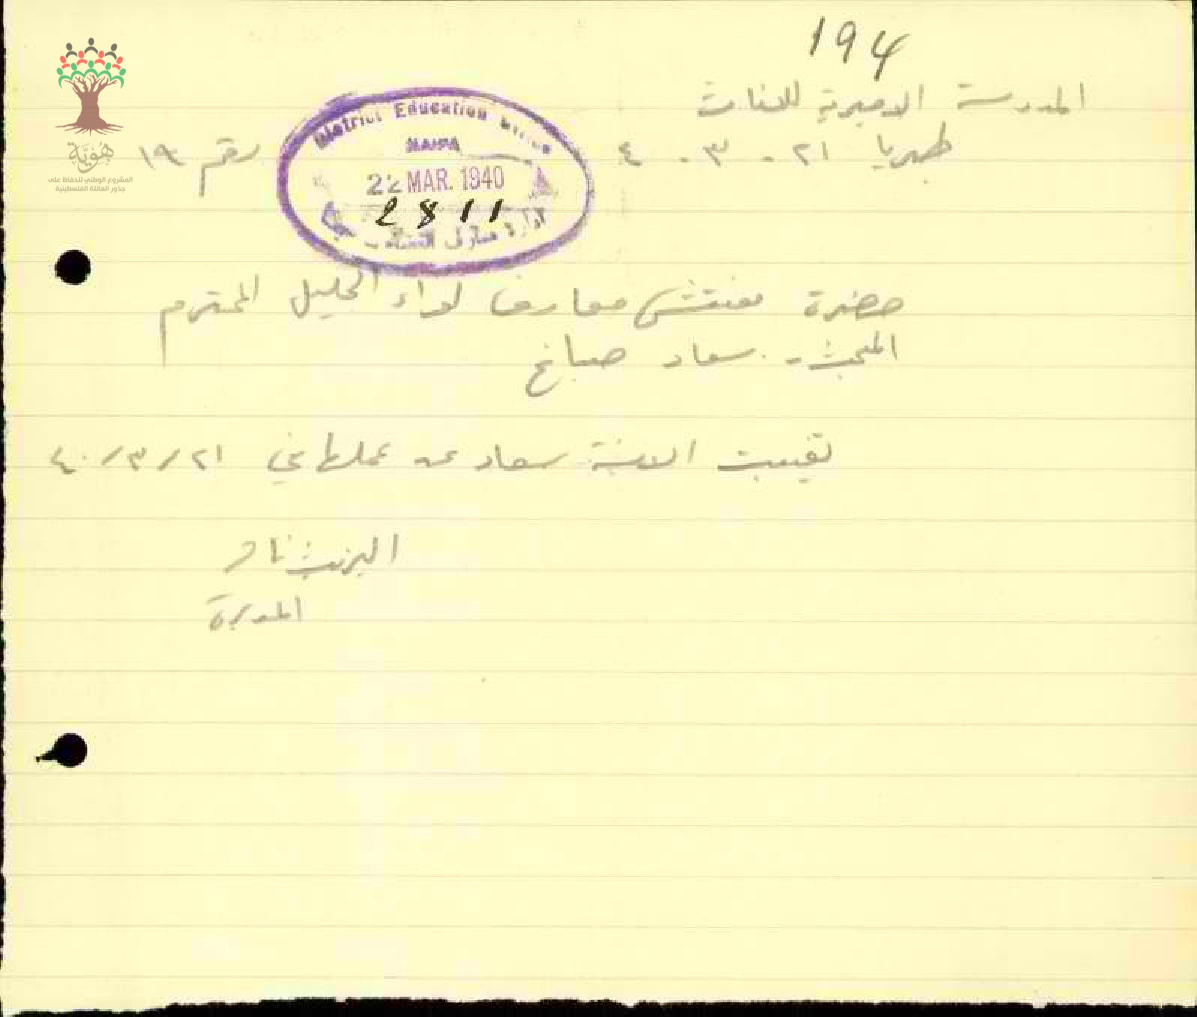 194
المدرسة الاميرية للبنات
طبريا ٢١ . ٣ . ٤٠
رقم ١٩
District Education Office
HAIFA
22 MAR. 1940
2811
ادارة معارف
هويّة
المشروع الوطني للحفاظ على
جذور العائلة الفلسطينية
حضرة مفتش معارف لواء الجليل المحترم
المبحث - سعاد صباغ
تغيبت الانسة سعاد عن عملها في ٢١/٣/٤٠
المديرة